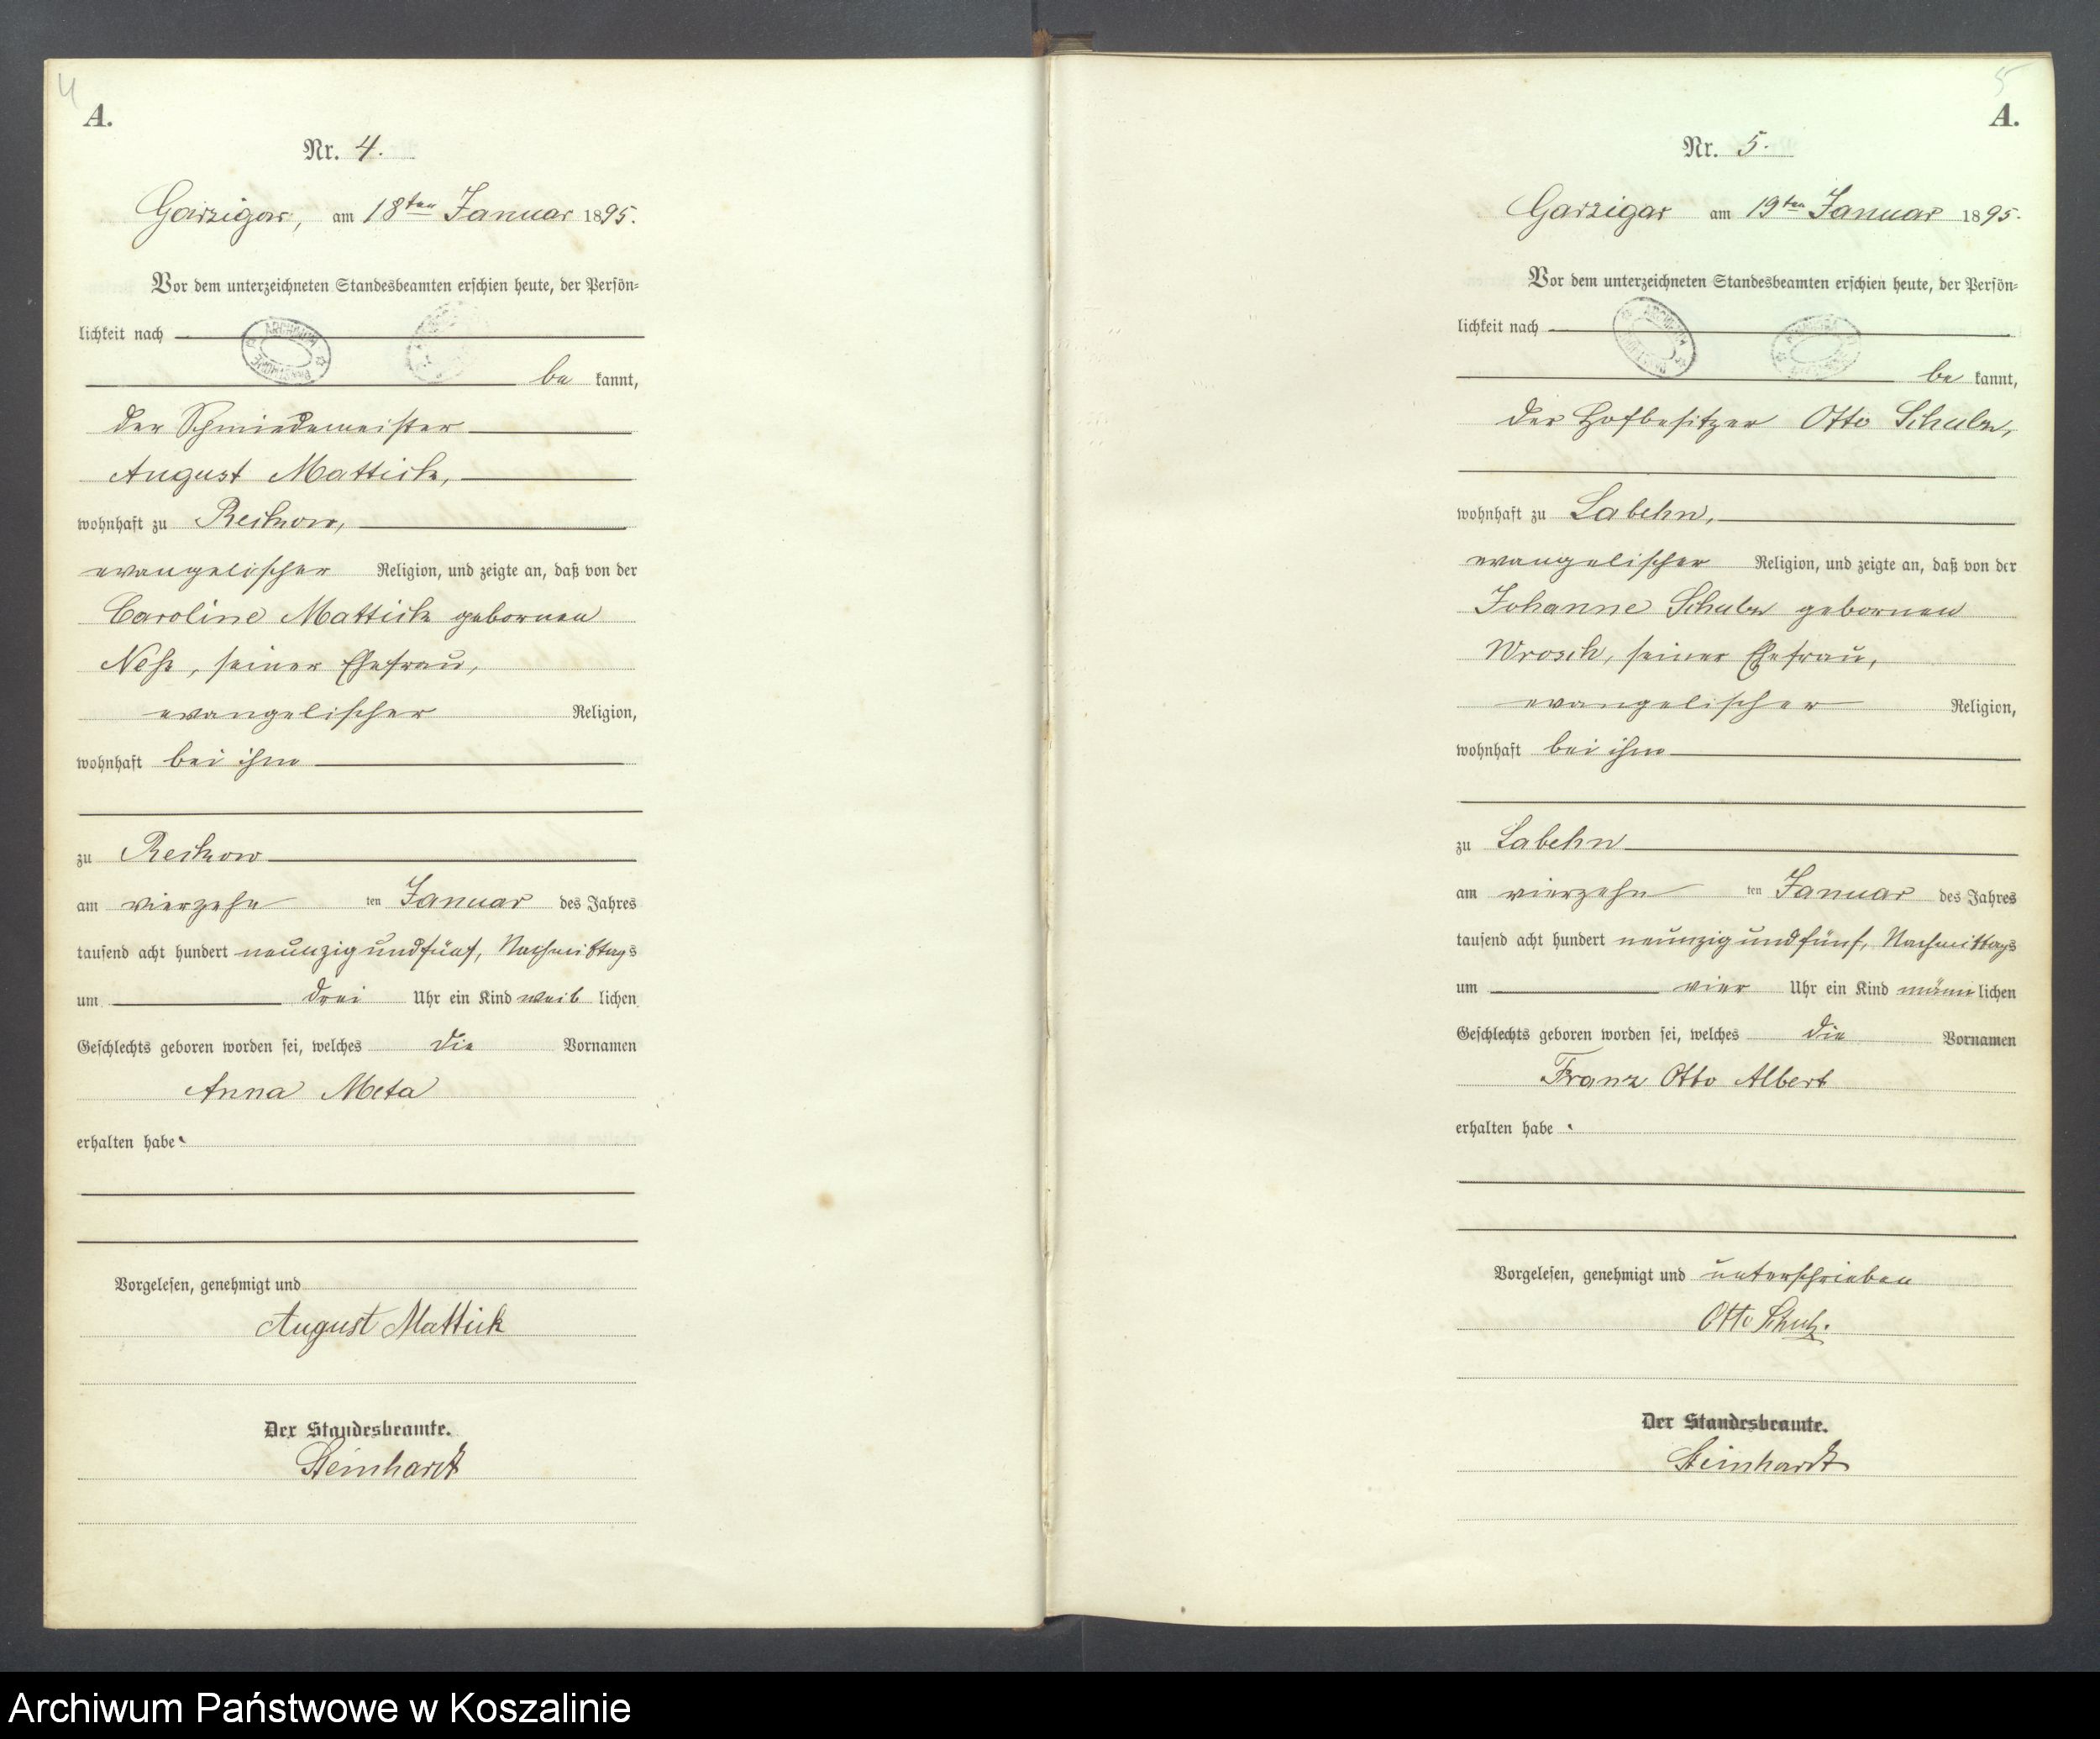 4
A.
Nr. 4.
Garzigar, am 18ten Januar 1895.
Vor dem unterzeichneten Standesbeamten erschien heute, der Persön-
lichkeit nach
be kannt,
der Schmiedemeister
August Mattick,
wohnhaft zu Reckow,
evangelischer Religion, und zeigte an, daß von der
Caroline Mattick gebornen
Neß, seiner Ehefrau,
evangelischer Religion,
wohnhaft bei ihm
zu Reckow
am vierzehn ten Januar des Jahres
tausend acht hundert neunzig und fünf, Nachmittags
um drei Uhr ein Kind weib lichen
Geschlechts geboren worden sei, welches die Vornamen
Anna Meta
erhalten habe.
Vorgelesen, genehmigt und
August Mattick
Der Standesbeamte.
Steinhardt
5
A.
Nr. 5.
Garzigar am 19ten Januar 1895.
Vor dem unterzeichneten Standesbeamten erschien heute, der Persön-
lichkeit nach
be kannt,
der Hofbesitzer Otto Schulz,
wohnhaft zu Labehn,
evangelischer Religion, und zeigte an, daß von der
Johanne Schulz gebornen
Wrosch, seiner Ehefrau,
evangelischer Religion,
wohnhaft bei ihm
zu Labehn
am vierzehn ten Januar des Jahres
tausend acht hundert neunzig und fünf, Nachmittags
um vier Uhr ein Kind männ lichen
Geschlechts geboren worden sei, welches die Vornamen
Franz Otto Albert
erhalten habe.
Vorgelesen, genehmigt und unterschrieben
Otto Schulz.
Der Standesbeamte.
Steinhardt
Archiwum Państwowe w Koszalinie